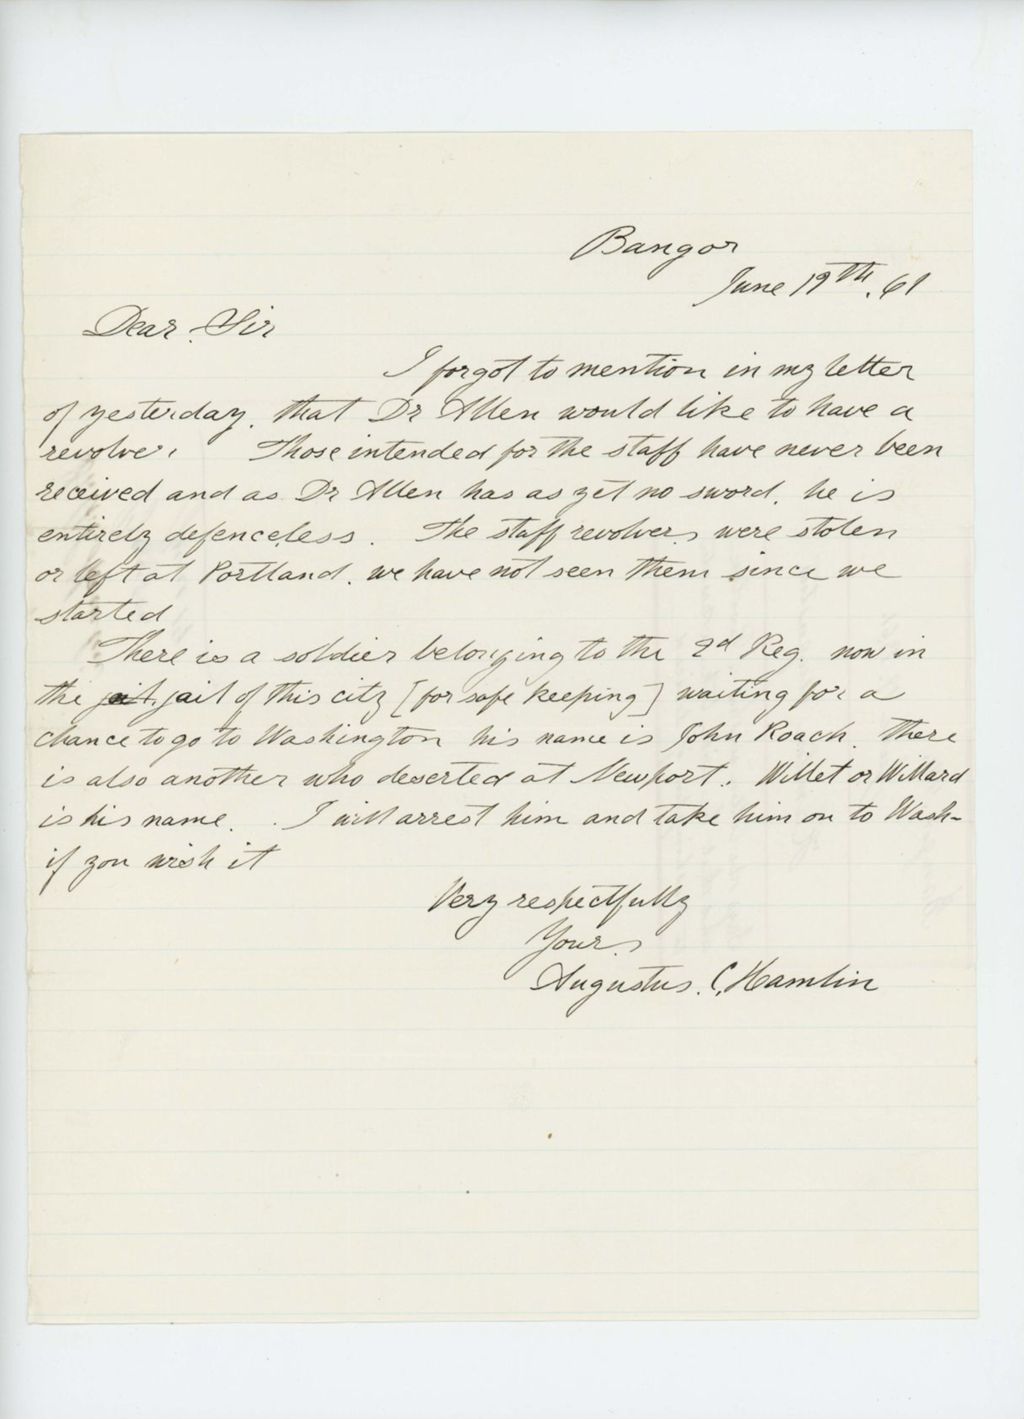 Bangor
June 19th. 61
Dear Sir
I forgot to mention in my letter
of yesterday, that Dr Allen would like to have a
revolver. Those intended for the staff have never been
received and as Dr Allen has as yet no sword, he is
entirely defenceless. The staff revolvers were stolen
or left at Portland, we have not seen them since we
started
There is a soldier belonging to the 2d Reg. now in
the jail of this city [for safe keeping] waiting for a
chance to go to Washington his name is John Roach. There
is also another who deserted at Newport. Willet or Willard
is his name. I will arrest him and take him on to Wash-
if you wish it
Very respectfully
Yours
Augustus. C. Hamlin